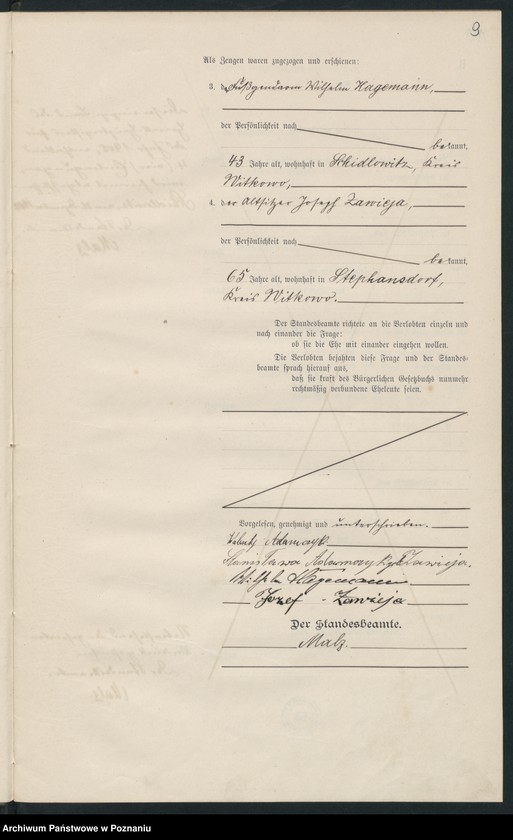 9
Als Zeugen waren zugezogen und erschienen:
3. der Fußgendarm Wilhelm Hagemann,
der Persönlichkeit nach
bekannt,
43 Jahre alt, wohnhaft in Schidlowitz, Kreis
Witkowo,
4. der Altsitzer Joseph Zawieja,
der Persönlichkeit nach
bekannt,
65 Jahre alt, wohnhaft in Stephansdorf,
Kreis Witkowo.
Der Standesbeamte richtete an die Verlobten einzeln und
nach einander die Frage:
ob sie die Ehe mit einander eingehen wollen.
Die Verlobten bejahten diese Frage und der Standes-
beamte sprach hierauf aus,
daß sie kraft des Bürgerlichen Gesetzbuchs nunmehr
rechtmäßig verbundene Eheleute seien.
Vorgelesen, genehmigt und unterschrieben.
Adamczyk
Stanisława Adamczyk Zawieja.
Wilhelm Hagemann
Jozef - Zawieja
Der Standesbeamte.
Malz.
Archiwum Państwowe w Poznaniu